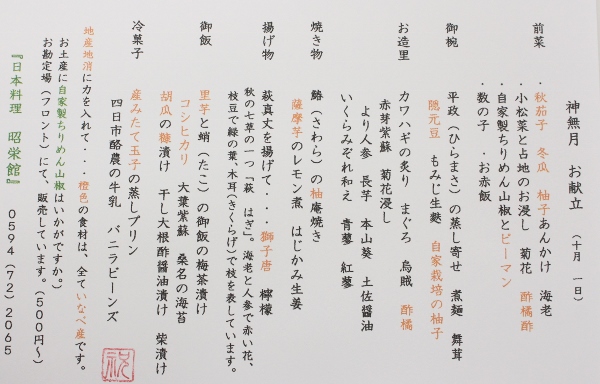 神無月　お献立　（十月　一日）
前菜　・秋茄子　冬瓜　柚子あんかけ　海老
・小松菜と占地のお浸し　菊花　酢橘酢
・自家製ちりめん山椒とピーマン
・数の子　・お赤飯
御椀　平政（ひらまさ）の蒸し寄せ　煮麺　舞茸
隠元豆　もみじ生麩　自家栽培の柚子
お造里　カワハギの炙り　まぐろ　烏賊　酢橘
赤芽紫蘇　菊花浸し
より人参　長芋　本山葵　土佐醤油
いくらみぞれ和え　青蓼　紅蓼
焼き物　鰆（さわら）の柚庵焼き
薩摩芋のレモン煮　はじかみ生姜
揚げ物　萩真丈を揚げて・・獅子唐　檸檬
秋の七草の一つ「萩　はぎ」。海老と人参で赤い花、
枝豆で緑の葉、木耳（きくらげ）で枝を表しています。
御飯　里芋と蛸（たこ）の御飯の梅茶漬け
コシヒカリ　大葉紫蘇　桑名の海苔
胡瓜の糠漬け　干し大根酢醤油漬け　柴漬け
冷菓子　産みたて玉子の蒸しプリン
四日市酪農の牛乳　バニラビーンズ
祝
地産地消に力を入れて・・橙色の食材は、全ていなべ産です。
お土産に自家製ちりめん山椒はいかがですか。
お勘定場（フロント）にて、販売しています。（５００円～）
『日本料理　昭栄館』　０５９４（７２）２０６５